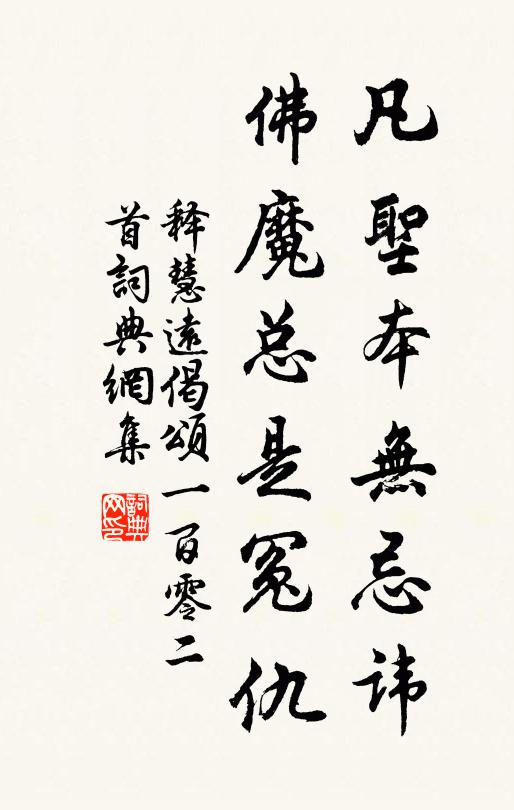 凡聖本無忌諱
佛魔总是冤仇
释慧遠偈頌一百零二
首詞典網集
詞典
网印